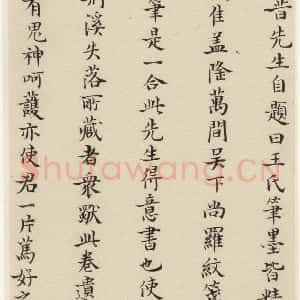 普先生自題曰王氏筆墨皆精
佳盖隆萬間吴下尚羅紋箋
筆是一合此先生得意書也使
溪失落所藏者衆獸此卷遺
有鬼神呵護亦使君一片篤好之
Shufawang.CN